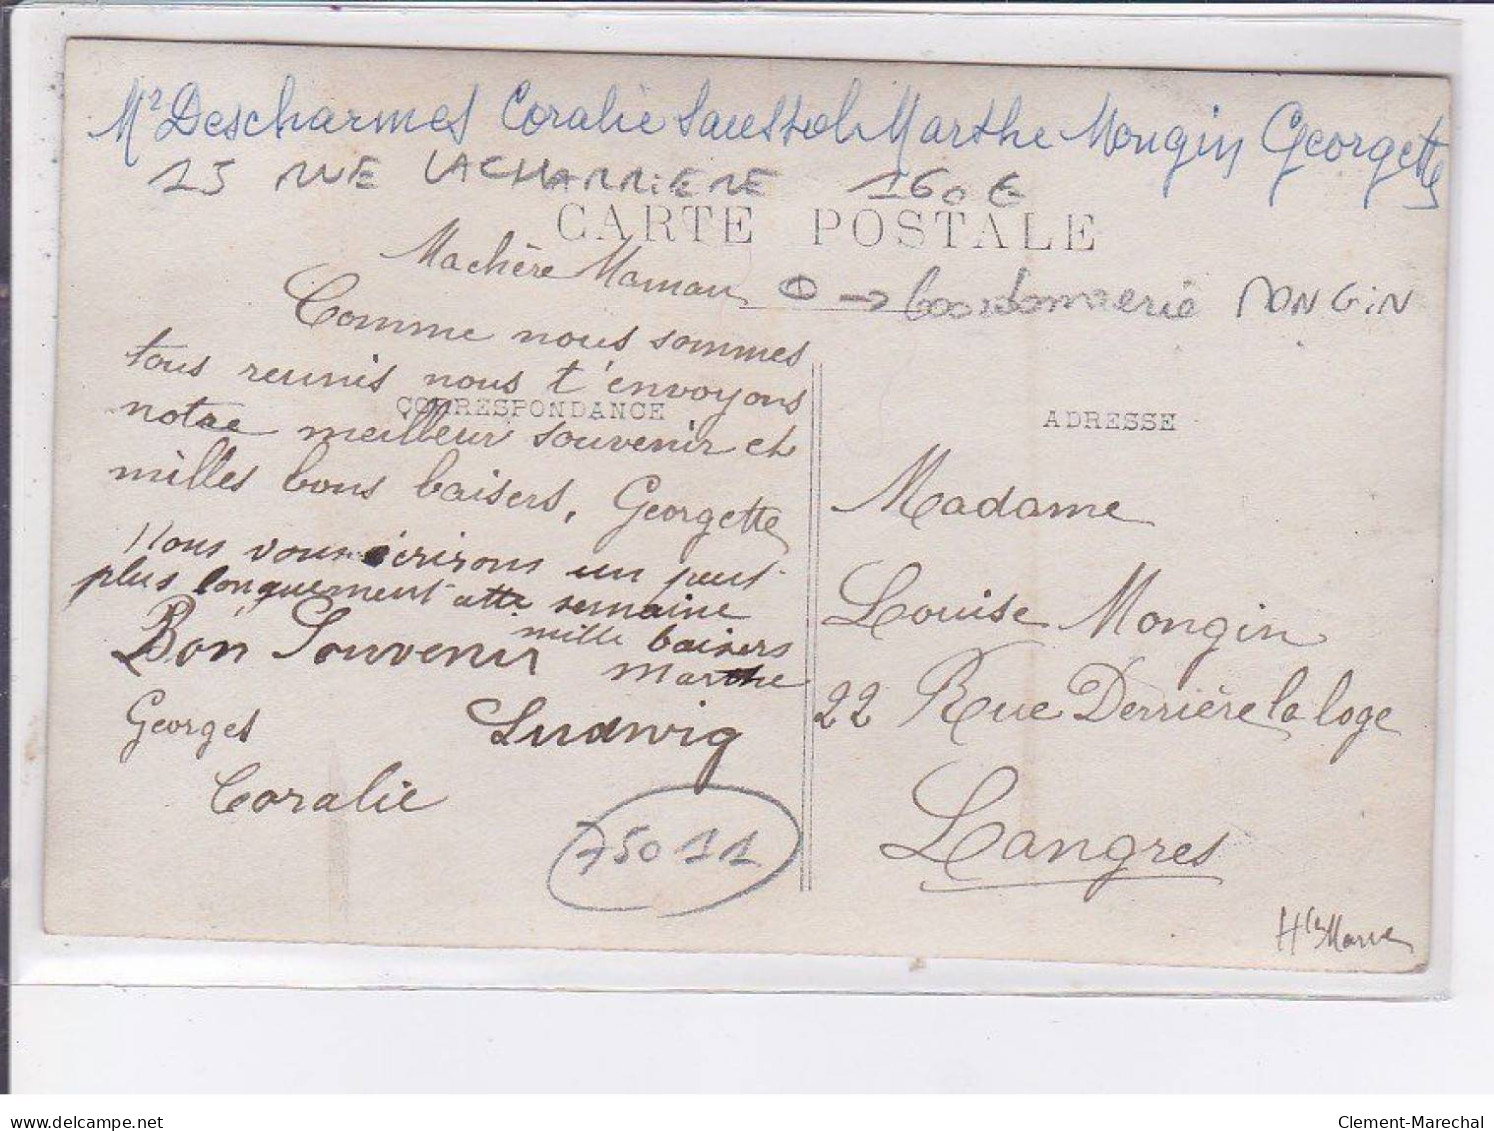 Mr Descharmes Coralie Marthe Mongin Georgette
15 RUE LACHARRIERE 160 €
CARTE POSTALE
Machère Maman
① → Cordonnerie MONGIN
Comme nous sommes
tous reunis nous t'envoyons
CORRESPONDANCE
notre meilleur souvenir et
milles bons baisers, Georgette
Nous vous écrirons un peut
plus longuement cette semaine
mille baisers
Bon Souvenir Marthe
Georges Ludwig
Coralie
75011
ADRESSE
Madame
Louise Mongin
22 Rue Derrière la loge
Langres
Hte Marne
www.delcampe.net
Clement-Marechal